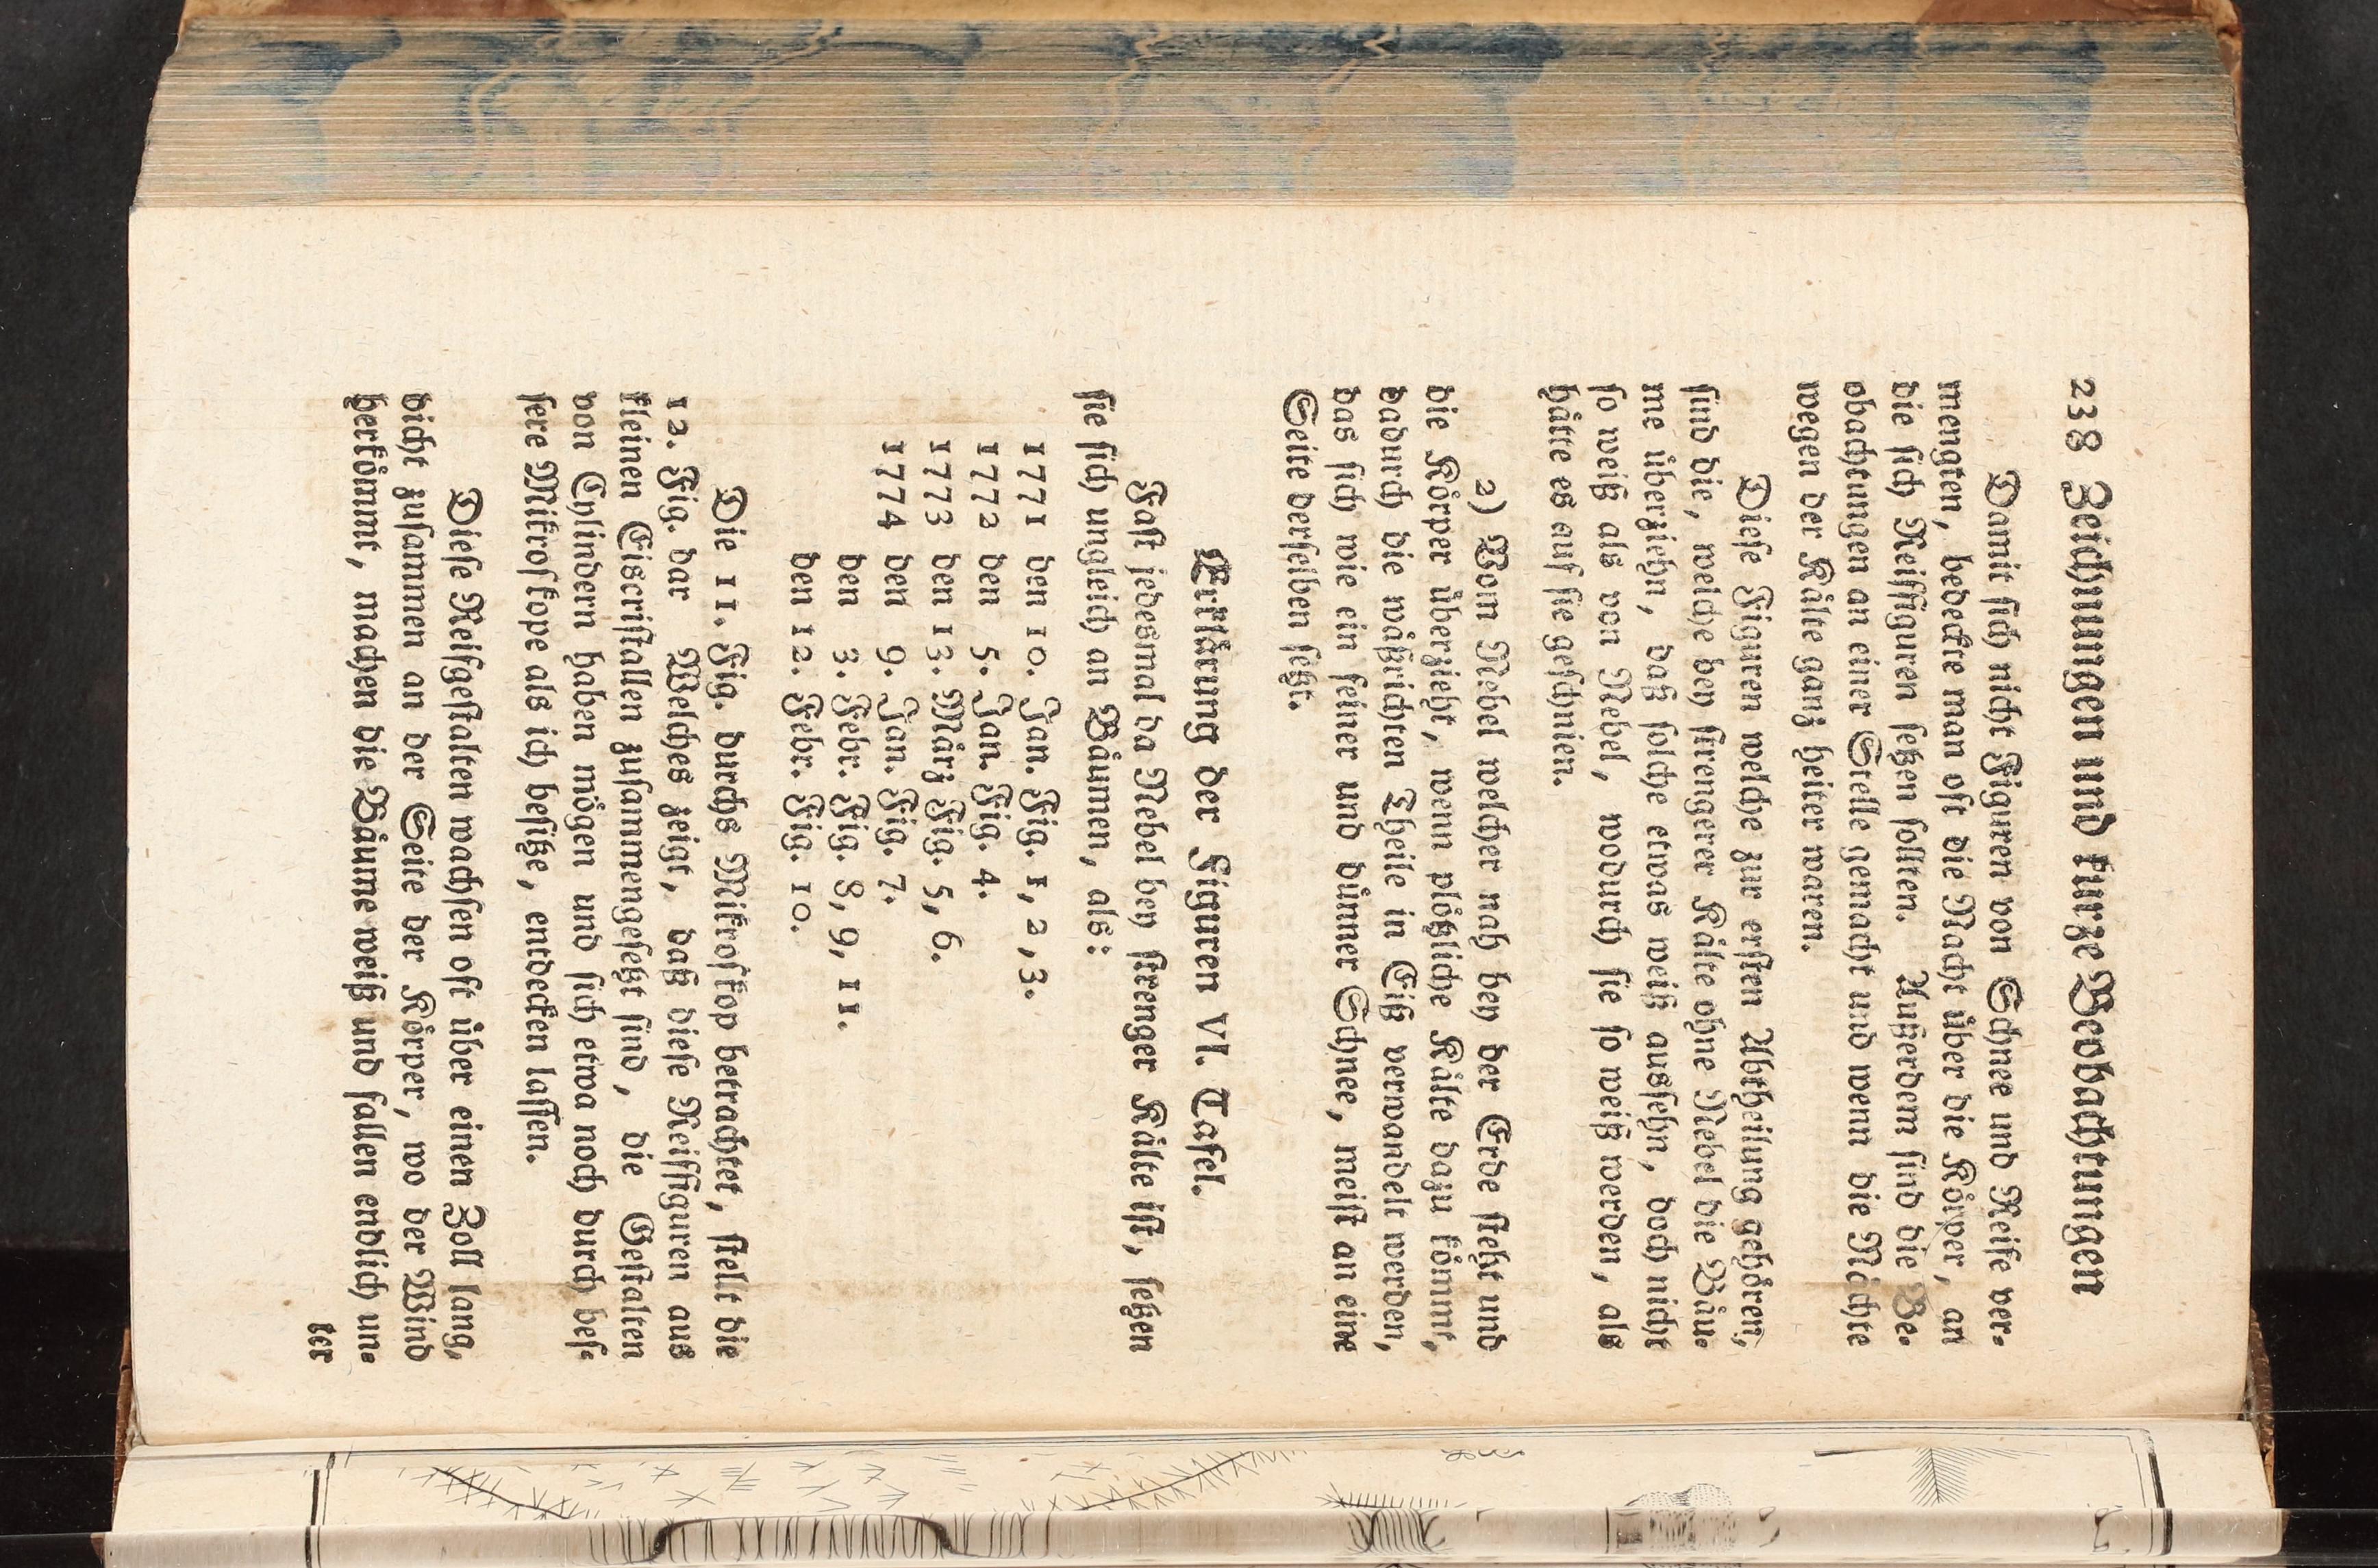 238 Zeichnungen und kurze Beobachtungen
Damit sich nicht Figuren von Schnee und Reife ver-
mengten, bedeckte man oft die Nacht über die Körper, an
die sich Reiffiguren setzen sollten. Außerdem sind die Be-
obachtungen an einer Stelle gemacht und wenn die Nächte
wegen der Kälte ganz heiter waren.
Diese Figuren welche zur ersten Abtheilung gehören,
sind die, welche bey strengerer Kälte ohne Nebel die Bäu-
me überziehn, daß solche etwas weiß aussehn, doch nicht
so weiß als von Nebel, wodurch sie so weiß werden, als
hätte es auf sie geschnien.
2) Vom Nebel welcher nah bey der Erde steht und
die Körper überzieht, wenn plötzliche Kälte dazu kömmt,
dadurch die wäßrichten Theile in Eiß verwandelt werden,
das sich wie ein feiner und dünner Schnee, meist an eine
Seite derselben setzt.
Erklärung der Figuren VI. Tafel.
Fast jedesmal da Nebel bey strenger Kälte ist, setzen
sie sich ungleich an Bäumen, als:
1771 den 10. Jan. Fig. 1, 2, 3.
1772 den 5. Jan. Fig. 4.
1773 den 13. März Fig. 5, 6.
1774 den 9. Jan. Fig. 7.
den 3. Febr. Fig. 8, 9, 11.
den 12. Febr. Fig. 10.
Die 11. Fig. durchs Mikroskop betrachtet, stellt die
12. Fig. dar Welches zeigt, daß diese Reiffiguren aus
kleinen Eiscristallen zusammengesetzt sind, die Gestalten
von Cylindern haben mögen und sich etwa noch durch bes-
sere Mikroskope als ich besitze, entdecken lassen.
Diese Reifgestalten wachsen oft über einen Zoll lang,
dicht zusammen an der Seite der Körper, wo der Wind
herkömmt, machen die Bäume weiß und fallen endlich un-
ter